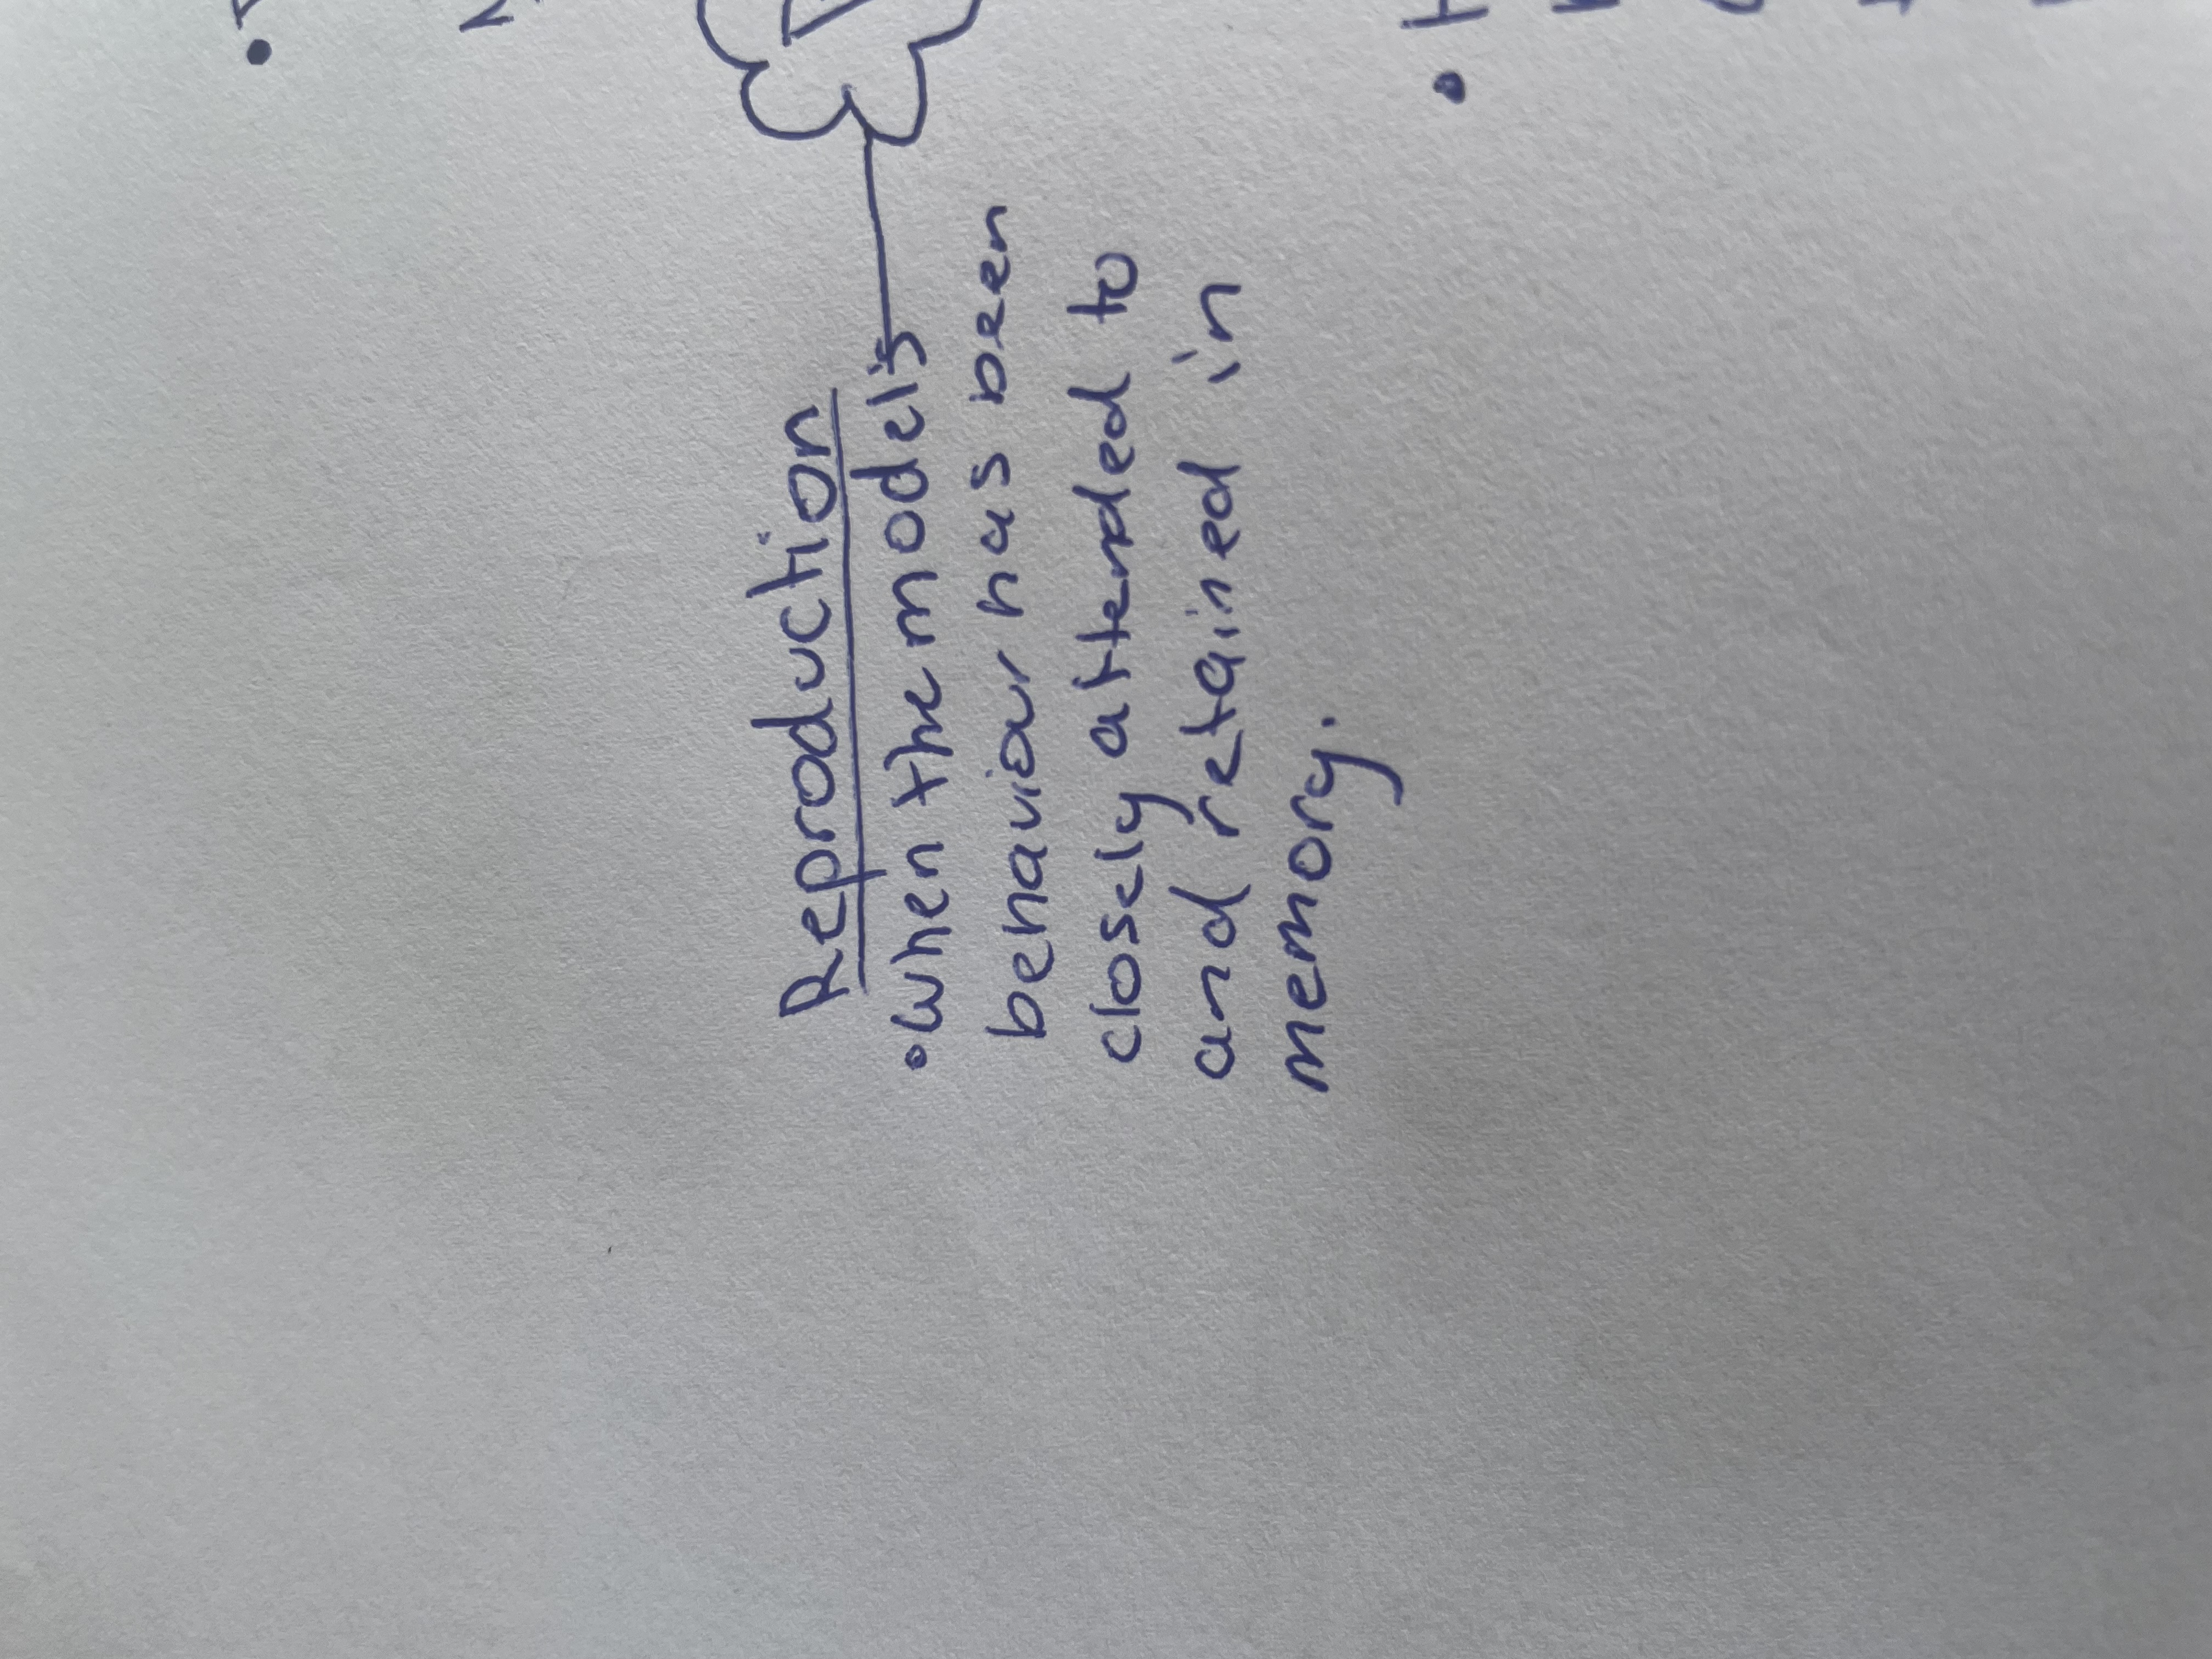 Reproduction
•When the model's
behaviour has been
closely attended to
and retained in
memory.